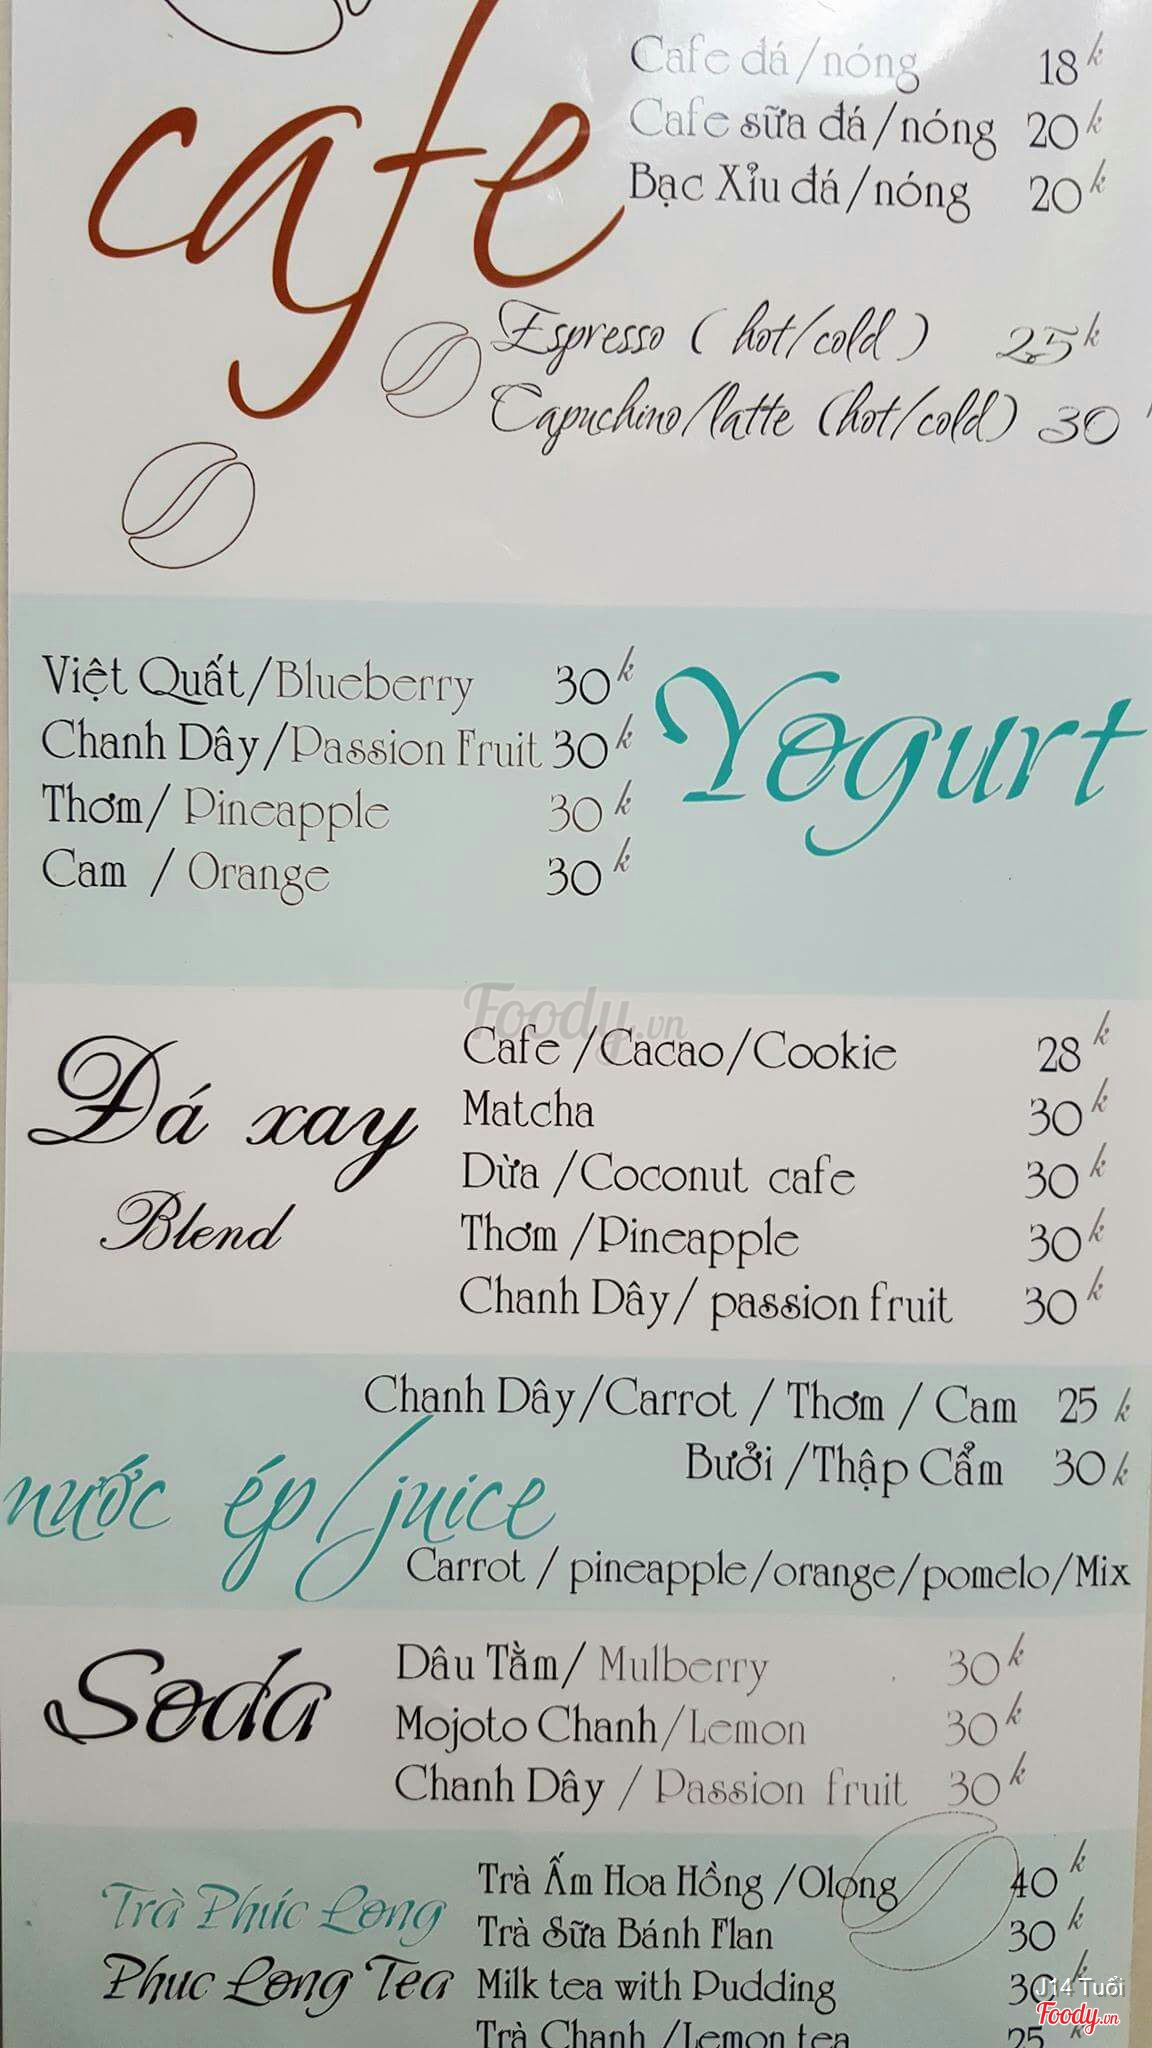 cafe
Cafe đá/nóng 18k
Cafe sữa đá/nóng 20k
Bạc Xỉu đá/nóng 20k
Espresso ( hot/cold ) 25k
Capuchino/latte (hot/cold) 30
Yogurt
Việt Quất/Blueberry 30k
Chanh Dây/Passion Fruit 30k
Thơm/ Pineapple 30k
Cam / Orange 30k
Foody.vn
Đá xay
Blend
Cafe /Cacao/Cookie 28k
Matcha 30k
Dừa /Coconut cafe 30k
Thơm /Pineapple 30k
Chanh Dây/ passion fruit 30k
nước ép/juice
Chanh Dây/Carrot / Thơm / Cam 25 k
Bưởi /Thập Cẩm 30k
Carrot / pineapple/orange/pomelo/Mix
Soda
Dâu Tằm/ Mulberry 30k
Mojoto Chanh/Lemon 30k
Chanh Dây / Passion fruit 30k
Trà Phúc Long
Phuc Long Tea
Trà Ấm Hoa Hồng /Olong 40k
Trà Sữa Bánh Flan 30k
Milk tea with Pudding 30k
Trà Chanh /Lemon tea 25k
J14 Tuổi
Foody.vn